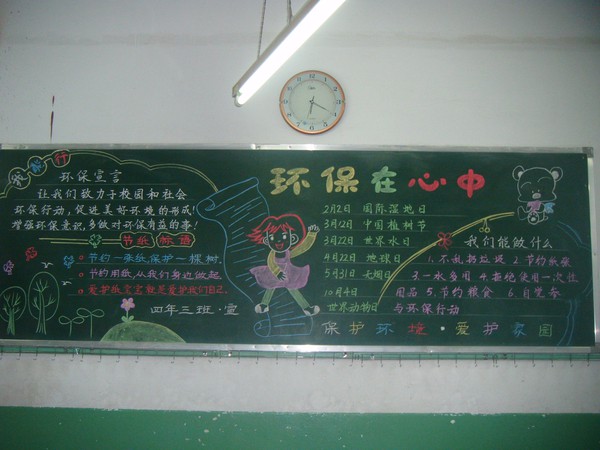 环保行
环保宣言
让我们致力于校园和社会
环保行动,促进美好环境的形成!
增强环保意识,多做对环保有益的事!
节纸标语
节约一张纸,保护一棵树.
节约用纸,从我们身边做起.
爱护纸宝宝就是爱护我们自己.
四年三班·宣
环保在心中
2月2日 国际湿地日
3月12日 中国植树节
3月22日 世界水日
4月22日 地球日
5月31日 无烟日
10月4日
世界动物日
我们能做什么
1.不乱扔垃圾 2.节约纸张
3.一水多用 4.拒绝使用一次性
用品 5.节约粮食 6.自觉参
与环保行动
保护环境·爱护家园